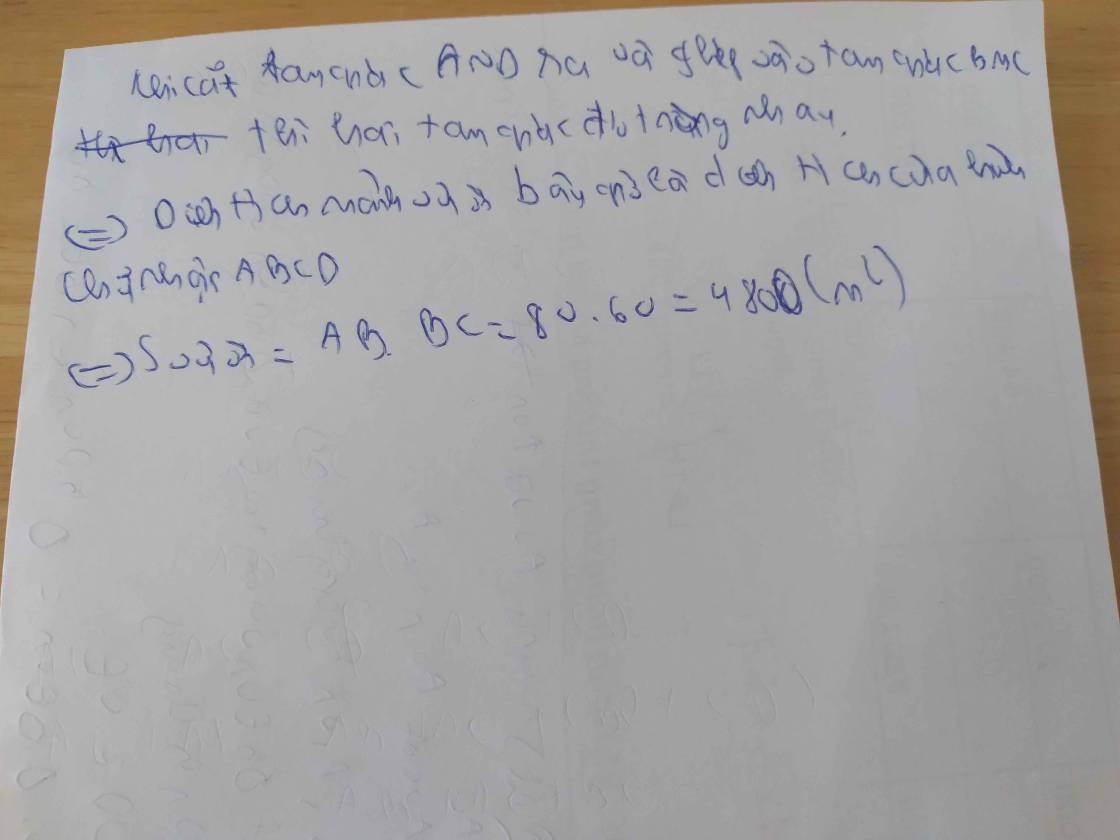 Khi cắt tam giác AND ra và ghép vào tam giác BMC
thì hai thì hai tam giác đó trùng nhau.
(=) Diện tích mảnh vườn bây giờ là diện tích của hình
chữ nhật ABCD
(=) S vườn = AB. BC = 80.60 = 4800 (m²)